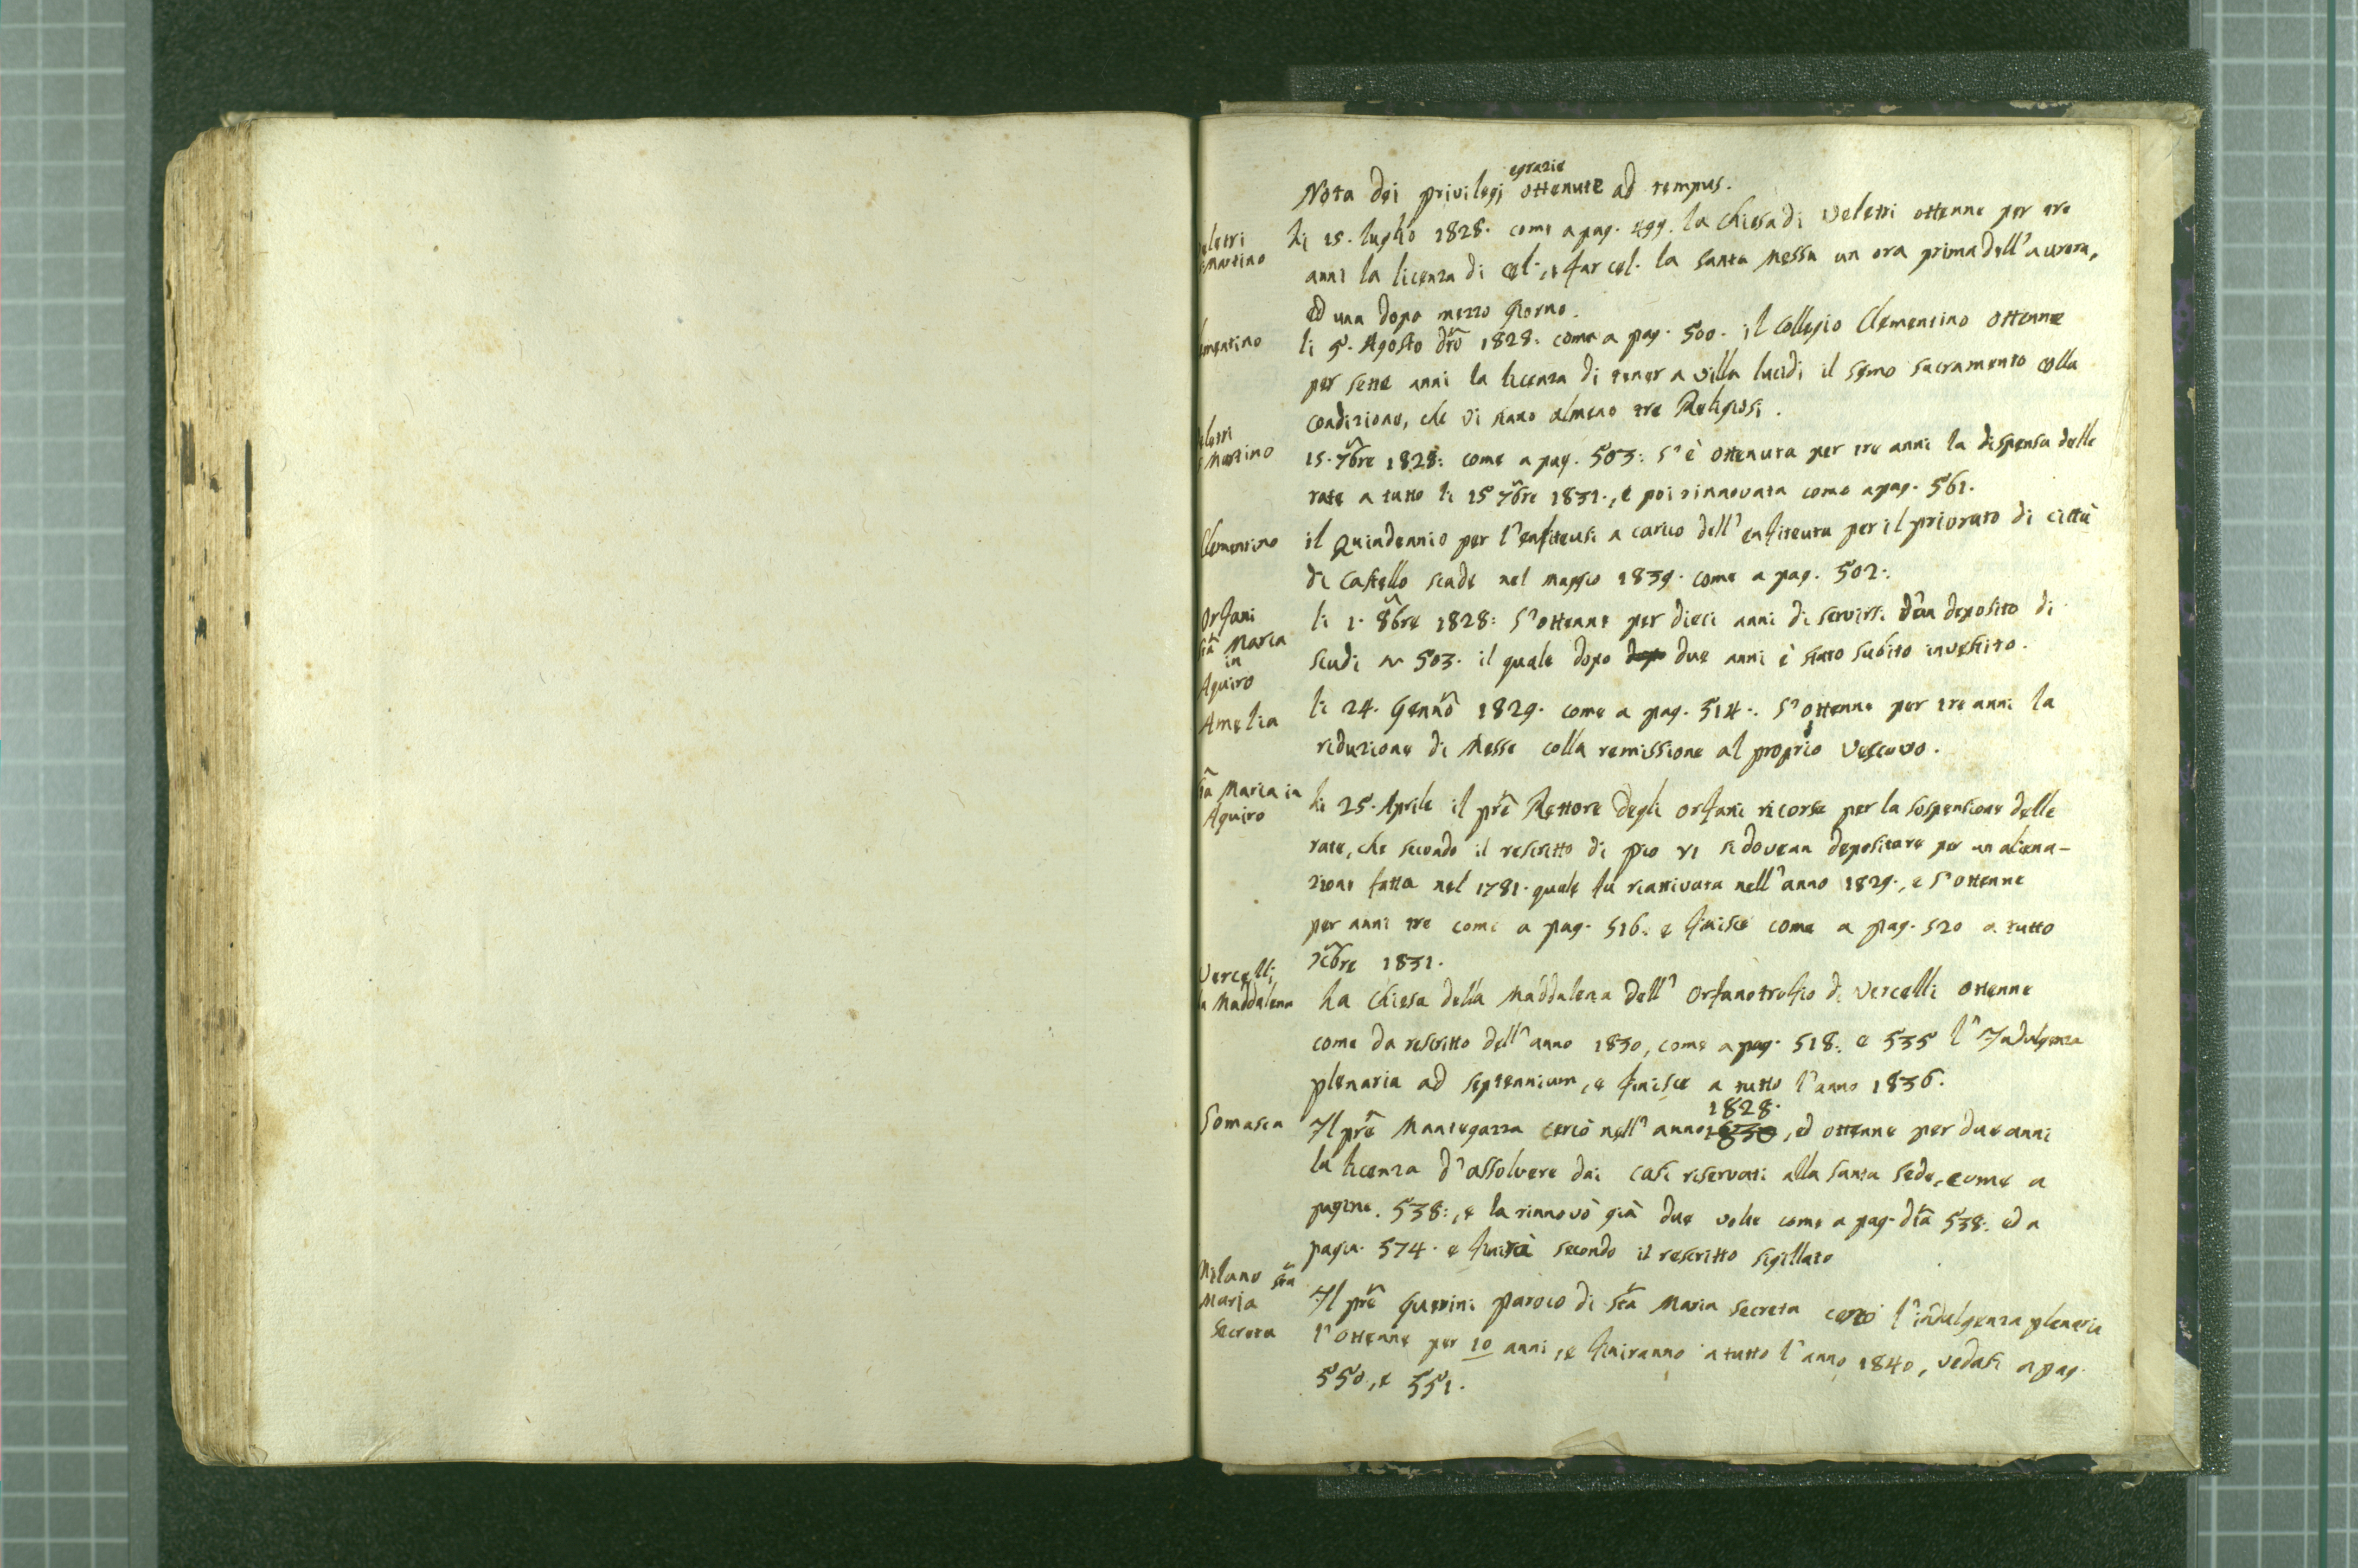 Nota dei privilegj egrazie ottenute ad tempus.
eletri
Martino
li 15. luglio 1828. come a pag. 499. la Chiesa di Veletri ottenne per tre
anni la licenza di cel., e far cel. la santa Messa un ora prima dell'aurora,
ed una dopo mezzo giorno.
mentino
li 9. Agosto dṛo 1828. come a pag. 500. il Collegio Clementino ottenne
per sette anni la licenza di tener a villa lucidi il Smo sacramento colla
condizione, che vi siano almeno tre Religiosi.
letri
Martino
15. 7bre 1828: come a pag. 503: s'è ottenuta per tre anni la dispensa delle
rate a tutto li 15 7bre 1831., e poi rinnovata come a pag. 561.
Clementino
il Quindennio per l'enfiteusi a carico dell'enfiteuta per il priorato di città
di Castello scade nel maggio 1839. come a pag. 502.
Orfani
sta Maria
in
Aquiro
li 1. 8bre 1828: s'ottenne per dieci anni di servirsi d'un deposito di
scudi 503. il quale dopo dopo due anni è stato subito investito.
Amelia
li 24. Genno 1829. come a pag. 514. s'ottenne per tre anni la
riduzione di Messe colla remissione al proprio Vescovo.
sta Maria in
Aquiro
li 25. Aprile il pre Rettore degli orfani ricorse per la sospensione delle
rate, che secondo il rescritto di pio VI si dovean depositare per un aliena-
zione fatta nel 1781. quale fu riattivata nell'anno 1829., e s'ottenne
per anni tre come a pag. 516. e finisce come a pag. 520 a tutto
Xcbre 1831.
Vercelli
la Maddalena
La Chiesa della Maddalena dell'Orfanotrofio di Vercelli ottenne
come da rescritto dell'anno 1830, come a pag. 518. e 535 l'Indulgenza
plenaria ad septennium, e finisce a tutto l'anno 1836.
Somasca
1828.
Il pre Mantegazza cercò nell'anno 1830, ed ottenne per due anni
la licenza d'assolvere dai casi riservati alla santa sede, come a
pagine. 538:, e la rinnovò già due volte come a pag. dta 538. ed a
pagin. 574. e finirà secondo il rescritto sigillato
Milano sta
Maria
Secreta
Il pre Guerini paroco di Sta Maria secreta cercò l'indulgenza plenaria
l'ottenne per 10 anni, e finiranno a tutto l'anno 1840, vedasi a pag.
550, e 551.